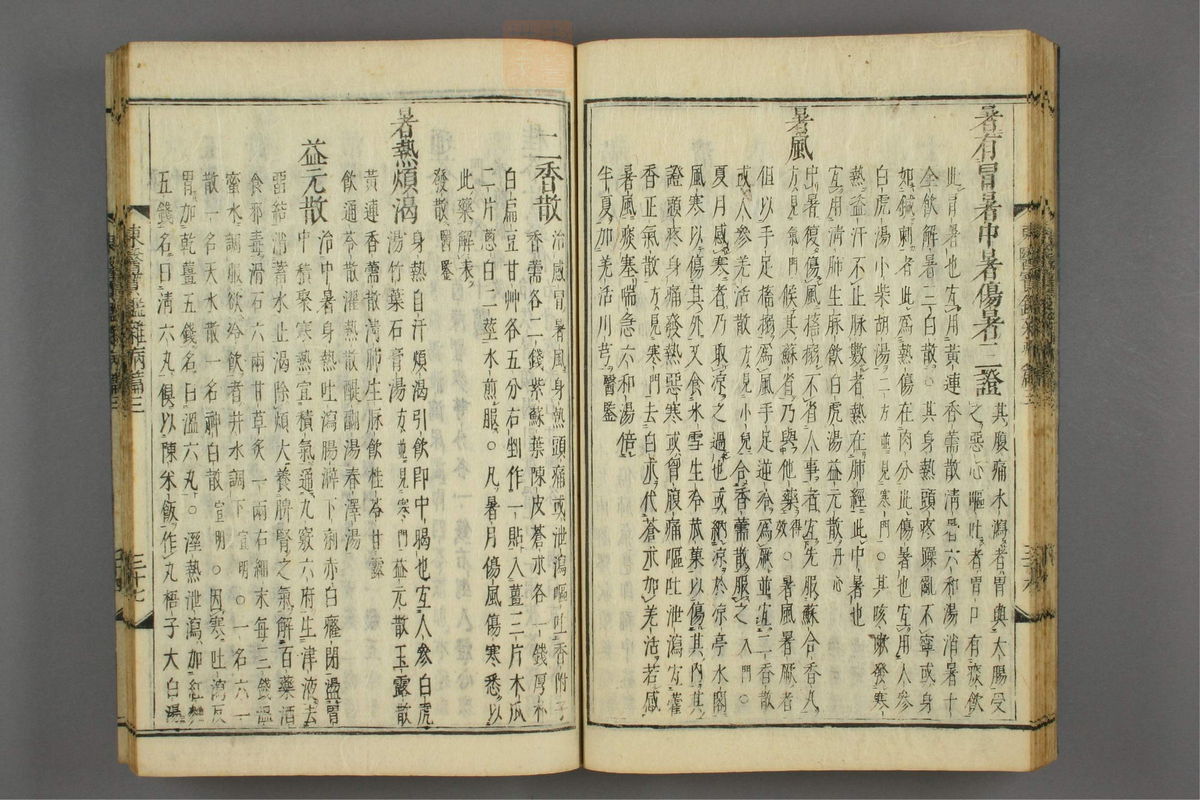 暑有冒暑中暑傷暑三證其腹痛水瀉者胃與大腸受
之惡心嘔吐者胃口有痰飮
此冒暑也宜用黃連香薷散淸暑六和湯消暑十
全飮解暑三白散○其身熱頭疼躁亂不寧或身
如鍼刺者此爲熱傷在肉分此傷暑也宜用人參
白虎湯小柴胡湯二方並見寒門○其咳嗽發寒
熱盜汗不止脉數者熱在肺經此中暑也
宜用淸肺生脉飮白虎湯益元散丹心
暑風
中暑復傷風搐搦不省人事者宜先服蘇合香丸
方見氣門候其蘇省乃與他藥得效○暑風暑厥者
但以手足搐搦爲風手足逆冷爲厥並宜二香散
或人參羌活散方見小兒合香薷散服之入門○
夏月感寒者乃取凉之過也或納凉於凉亭水閣
風寒以傷其外又食氷雪生冷菰菓以傷其內其
證頭疼身痛發熱惡寒或胷腹痛嘔吐泄瀉宜藿
香正氣散方見寒門去白朮代蒼朮加羌活若感
暑風痰塞喘急六和湯倍
半夏加羌活川芎醫鑑
二香散治感冒暑風身熱頭痛或泄瀉嘔吐香附子
香薷各二錢紫蘇葉陳皮蒼朮各一錢厚朴
白扁豆甘艸各五分右剉作一貼入薑三片木瓜
二片葱白二莖水煎服○凡暑月傷風傷寒悉以
此藥解表
發散醫鑑
暑熱煩渴身熱自汗煩渴引飮卽中暍也宜人參白虎
湯竹葉石膏湯方並見寒門益元散玉露散
黃連香薷散淸肺生脉飮桂苓甘露
飮通苓散濯熱散醍醐湯春澤湯
益元散治中暑身熱吐瀉腸澼下痢赤白癃閉盪胃
中積聚寒熱宣積氣通九竅六府生津液去
畱結消蓄水止渴除煩大養脾腎之氣解百藥酒
食邪毒滑石六兩甘草灸一兩右細末每三錢溫
蜜水調服欲冷飮者井水調下宣明○一名六一
散一名天水散一名神白散宣明○因寒吐瀉反
胃加乾薑五錢名曰溫六丸○溼熱泄瀉加紅麴
五錢名曰淸六丸俱以陳米飯作丸梧子大白湯